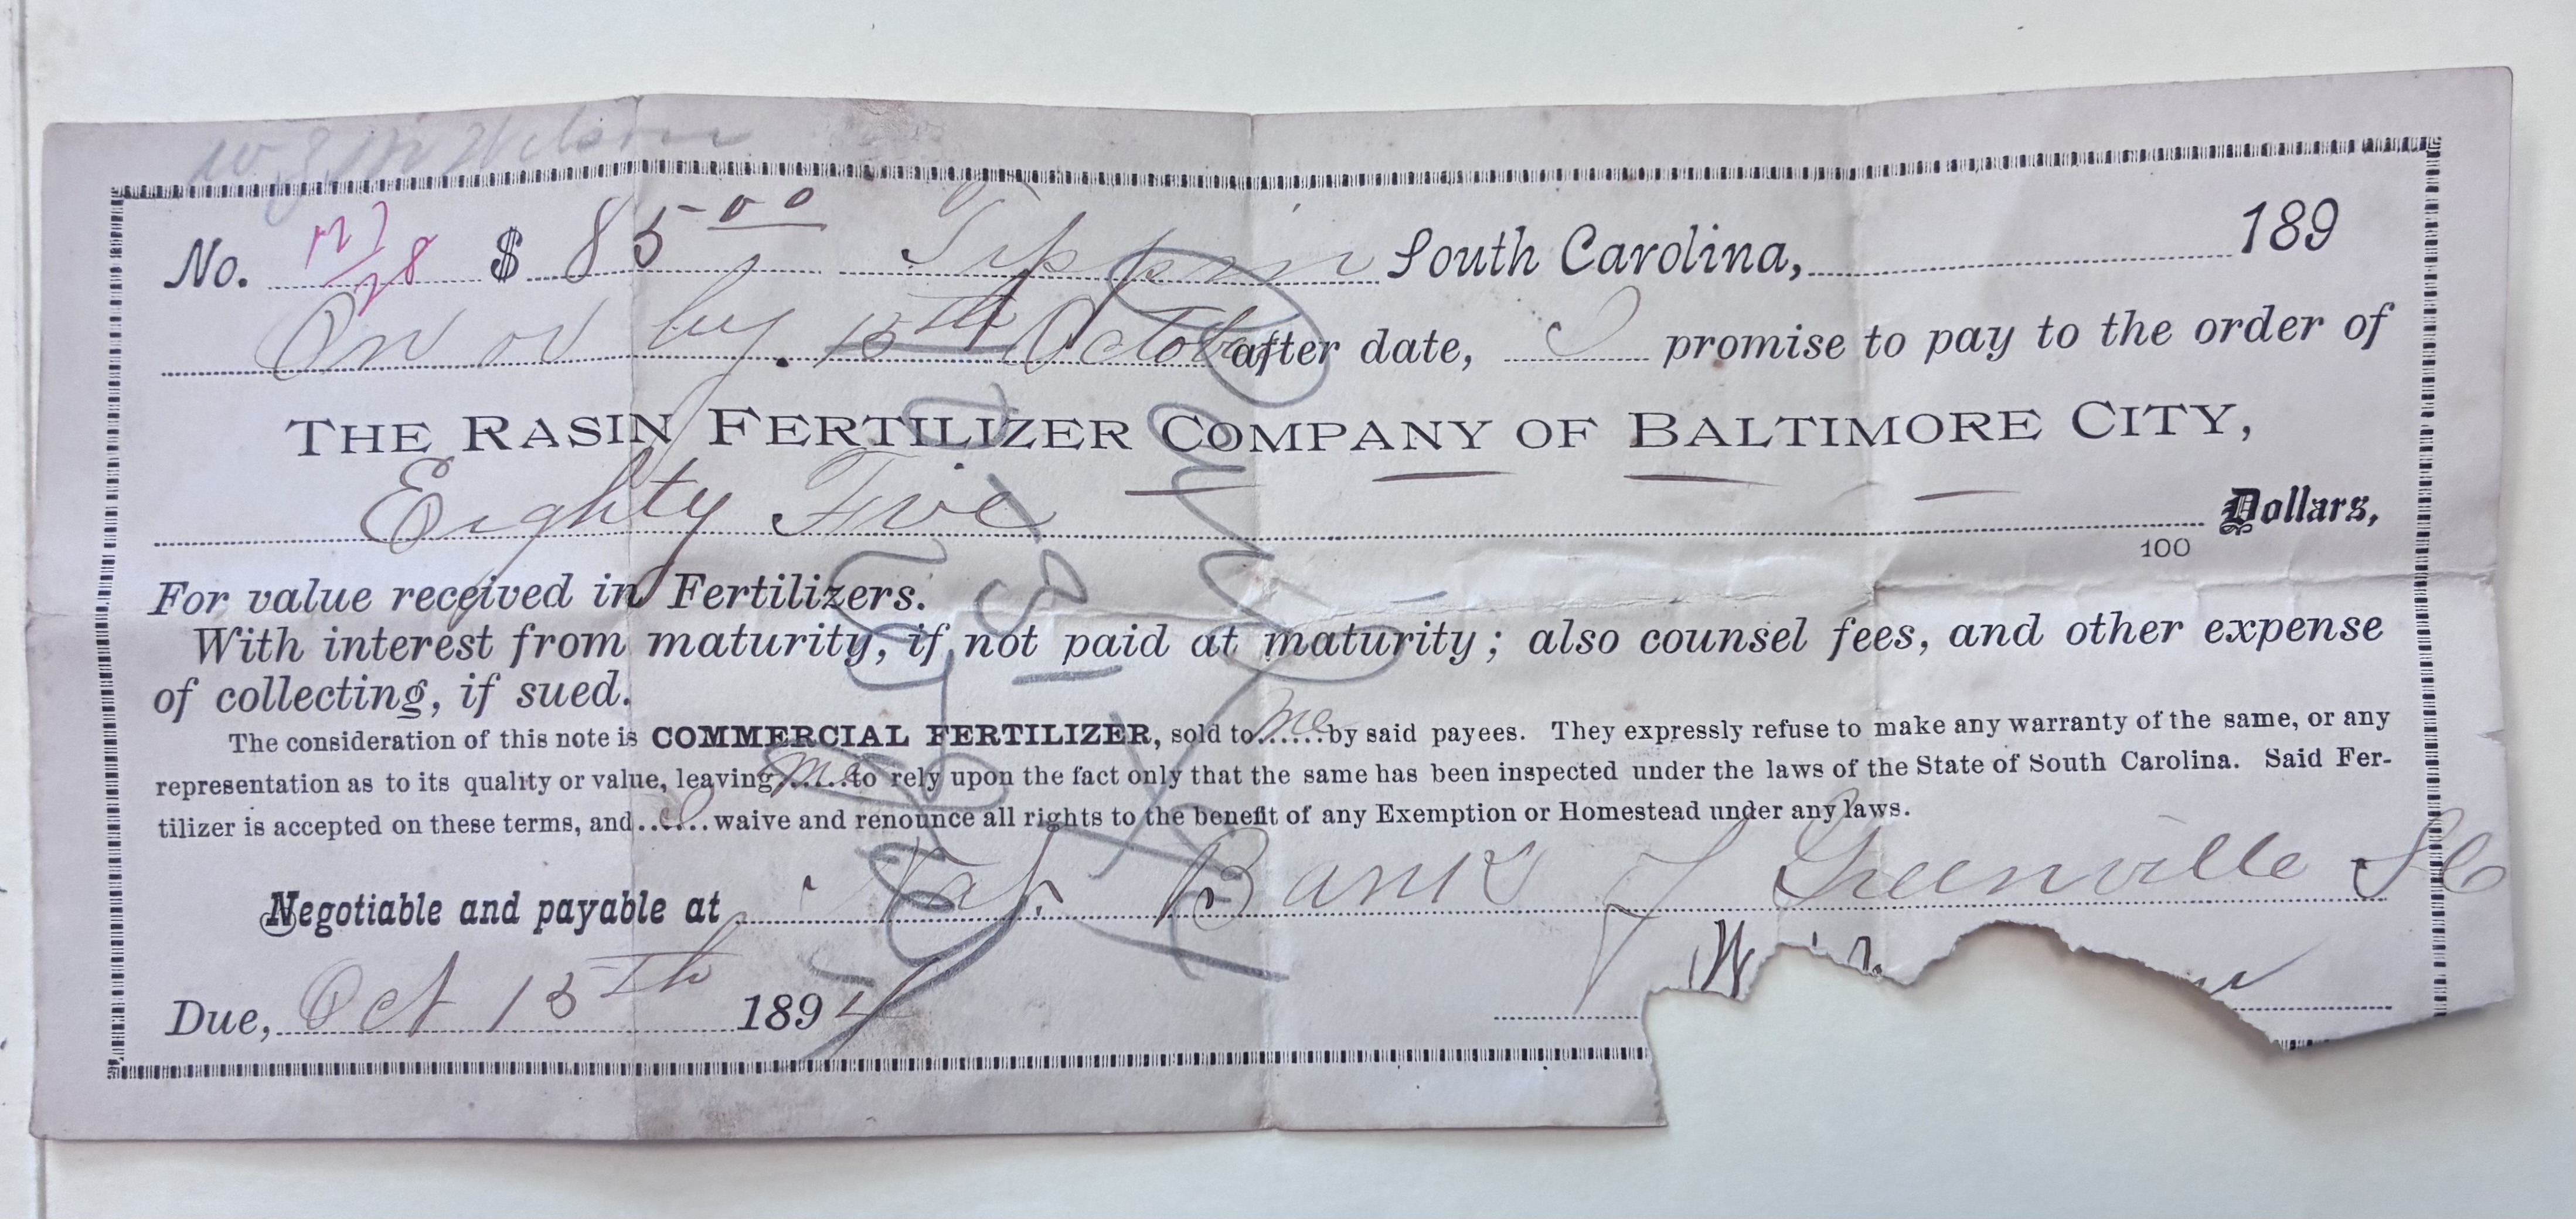 No. $ 85 00 South Carolina, 189
On or by 15th October after date, I promise to pay to the order of
THE RASIN FERTILIZER COMPANY OF BALTIMORE CITY,
Eighty Five Dollars,
100
For value received in Fertilizers.
With interest from maturity, if not paid at maturity; also counsel fees, and other expense
of collecting, if sued.
The consideration of this note is COMMERCIAL FERTILIZER, sold to me by said payees. They expressly refuse to make any warranty of the same, or any
representation as to its quality or value, leaving me to rely upon the fact only that the same has been inspected under the laws of the State of South Carolina. Said Fer-
tilizer is accepted on these terms, and I waive and renounce all rights to the benefit of any Exemption or Homestead under any laws.
Negotiable and payable at Nat. Bank of Greenville SC
Due, Oct 15th 1894